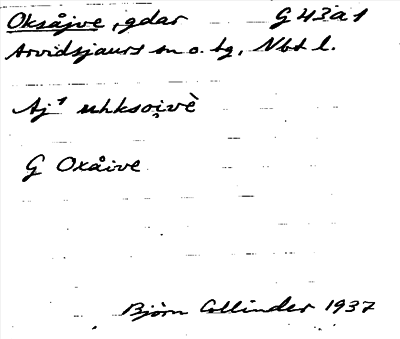 Oksåjve, gdar G43a1
Arvidsjaurs sn o. tg, Nbt l.
Aj¹ uhksoi̯vè
G Oxåive
Björn Collinder 1937